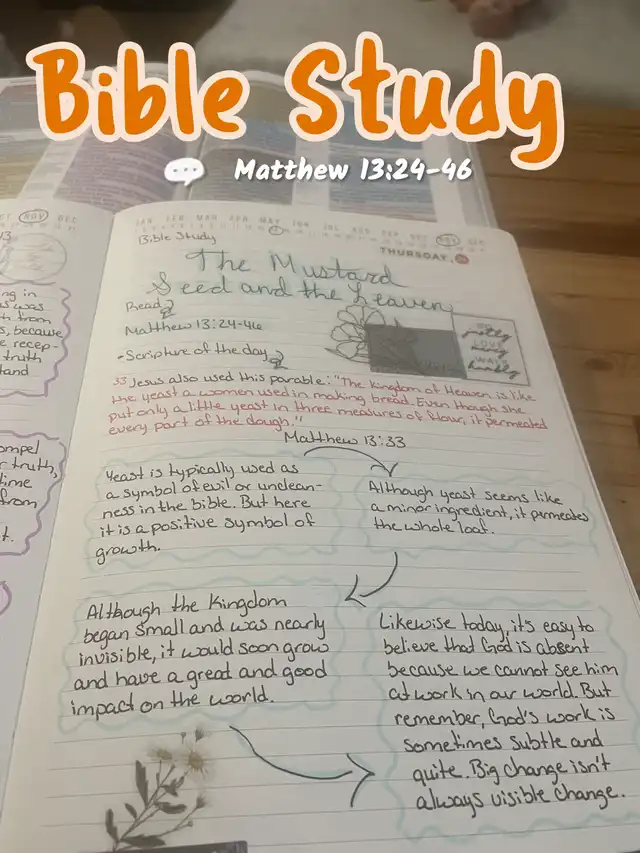 Bible Study
Matthew 13:24-46
NOV DEC
JAN FEB MAR APR MAY JUN JUL AUG SEP OCT NOV DEC
Bible Study
THURSDAY
The Mustard
Seed and the Leaven
Read
Matthew 13:24-46
-Scripture of the day
33 Jesus also used this parable: "The Kingdom of Heaven is like
the yeast a women used in making bread. Even though she
put only a little yeast in three measures of flour, it permeated
every part of the dough."
Matthew 13:33
Yeast is typically used as
a symbol of evil or unclean-
ness in the bible. But here
it is a positive symbol of
growth.
Although yeast seems like
a minor ingredient, it permeates
the whole loaf.
Although the Kingdom
began small and was nearly
invisible, it would soon grow
and have a great and good
impact on the world.
Likewise today, it's easy to
believe that God is absent
because we cannot see him
at work in our world. But
remember, God's work is
sometimes subtle and
quite. Big change isn't
always visible change.
ng in
was
from
because
recep-
truth
tand
ompel
truth,
time
from
t.
justly
LOVE
mercy
WALK
humbly